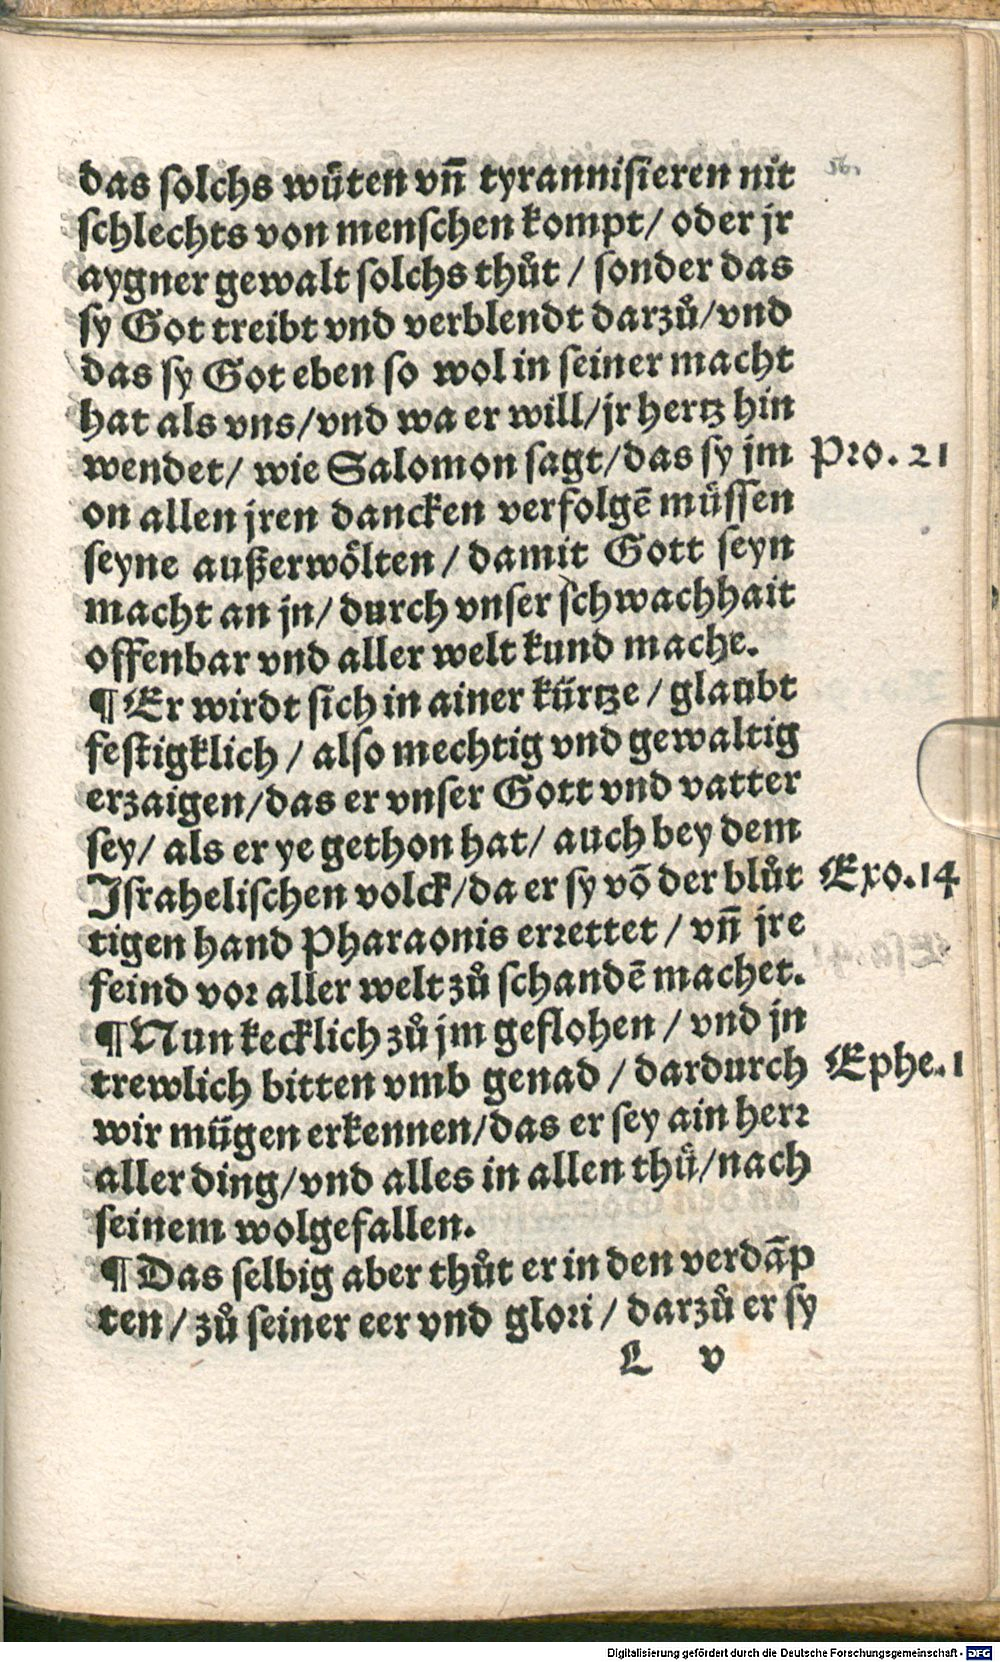 das solchs wüten vñ tyrannisieren nit
56.
schlechts von menschen kompt/ oder jr
aygner gewalt solchs thůt / sonder das
sy Got treibt vnd verblendt darzů/vnd
das sy Got eben so wol in seiner macht
hat als vns/vnd wa er will/jr hertz hin
wendet/ wie Salomon sagt/das sy jm
Pro. 21
on allen jren dancken verfolgē müssen
seyne außerwölten / damit Gott seyn
macht an jn/ durch vnser schwachhait
offenbar vnd aller welt kund mache.
¶ Er wirdt sich in ainer kürtze / glaubt
festigklich / also mechtig vnd gewaltig
erzaigen/das er vnser Gott vnd vatter
sey/ als er ye gethon hat/ auch bey dem
Israhelischen volck/da er sy võ der blůt
Exo.14
tigen hand Pharaonis errettet / vñ jre
feind vor aller welt zů schandē machet.
¶ Nun kecklich zů jm geflohen / vnd jn
trewlich bitten vmb genad / dardurch
Ephe.1
wir mügen erkennen/das er sey ain herr
aller ding/vnd alles in allen thů/nach
seinem wolgefallen.
¶ Das selbig aber thůt er in den verdāp
ten / zů seiner eer vnd glori / darzů er sy
L v
Digitalisierung gefördert durch die Deutsche Forschungsgemeinschaft - DFG